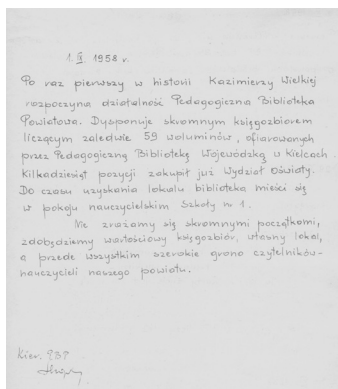 1. IX. 1958 r.
Po raz pierwszy w historii Kazimierzy Wielkiej
rozpoczyna działalność Pedagogiczna Biblioteka
Powiatowa. Dysponuje skromnym księgozbiorem
liczącym zaledwie 59 woluminów, ofiarowanych
przez Pedagogiczną Bibliotekę Wojewódzką w Kielcach.
Kilkadziesiąt pozycji zakupił już Wydział Oświaty.
Do czasu uzyskania lokalu biblioteka mieści się
w pokoju nauczycielskim Szkoły nr 1.
Nie zrażamy się skromnymi początkami,
zdobędziemy wartościowy księgozbiór, własny lokal,
a przede wszystkim szerokie grono czytelników-
nauczycieli naszego powiatu.
Kier. PBP